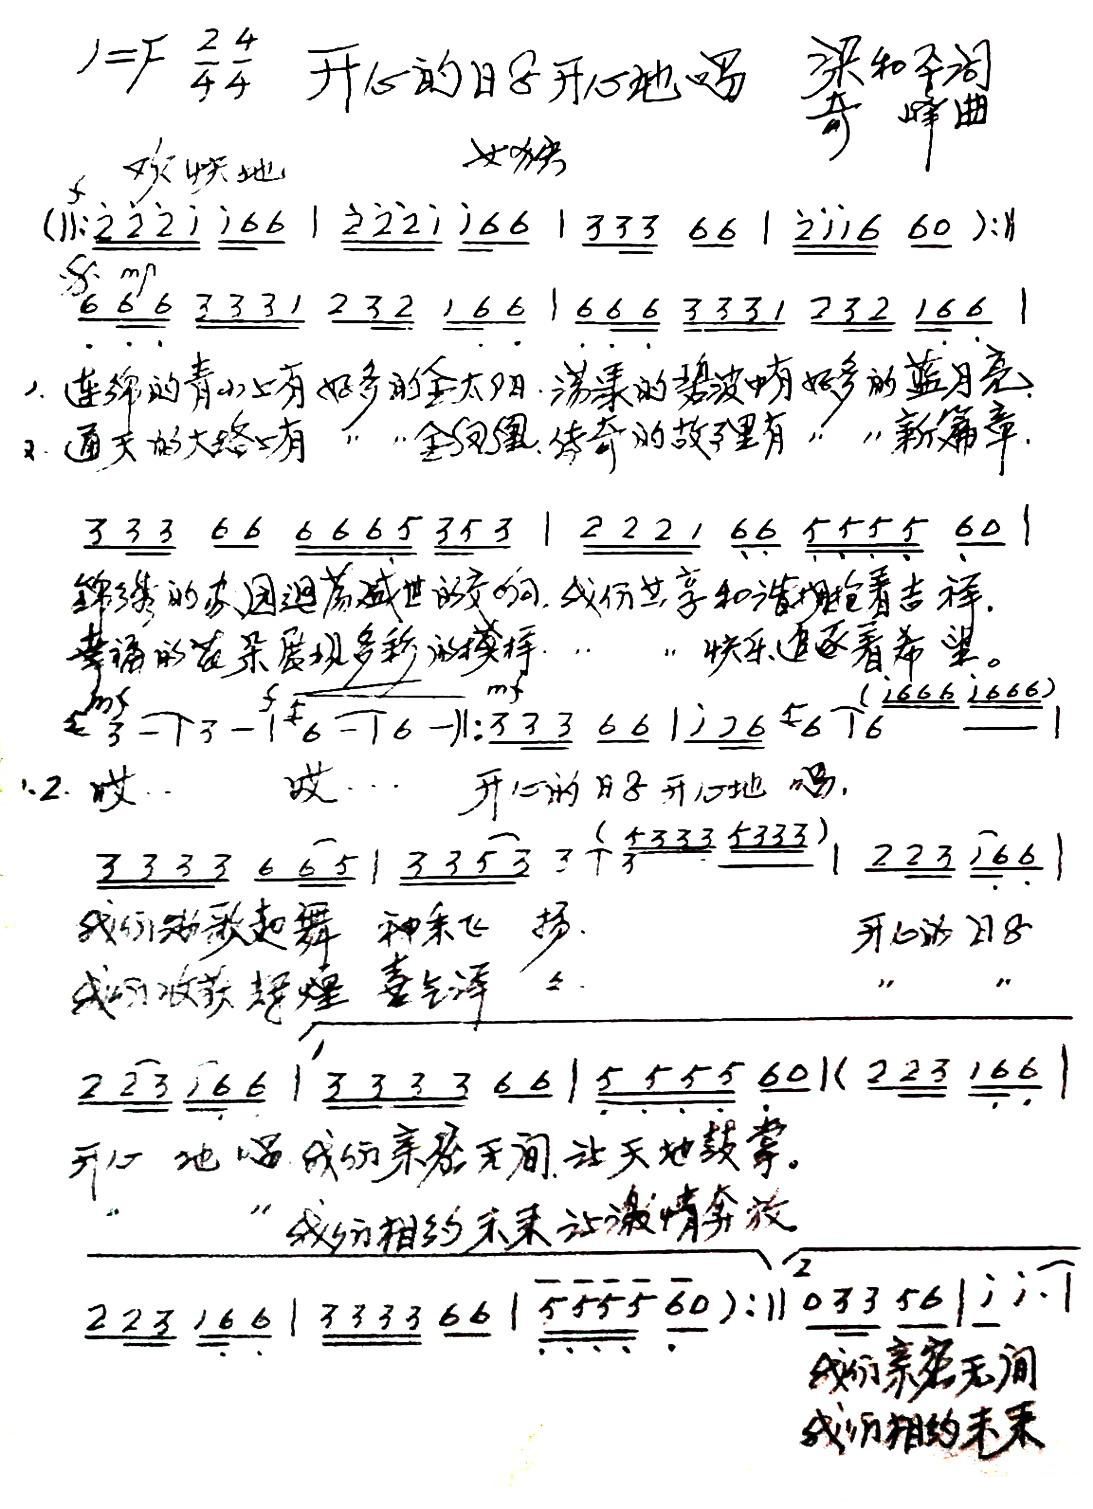 1=F 2/4 4/4 开心的日子开心地唱 梁和平词
奇峰曲
欢快地 女独
f
(‖: 2̇2̇2̇1̇ 1̇66 | 2̇2̇2̇1̇ 1̇66 | 333 66 | 2̇1̇1̇6 60 ):‖
mf
666 3331 232 166 | 666 3331 232 166 |
1. 连绵的青山上有好多的金太阳.荡漾的碧波中有好多的蓝月亮.
2. 通天的大路上有 〃 〃 金凤凰.传奇的故事里有 〃 〃 新篇章.
333 66 6665 353 | 2221 66 5555 60 |
锦绣的家园迴荡盛世的交响.我们共享和谐拥抱着吉祥.
幸福的花朵展现多彩的模样. 〃 〃 快乐追逐着希望。
mf f mf (1̇666 1̇666)
3 - | 3 - | 5 6 - | 6 - ‖: 333 66 | 1̇26 56 | 6 |
1.2. 哎.. 哎... 开心的日子开心地 唱.
(5333 5333)
3333 665 | 3353 3 | 3 | 223 1̇66 |
我们放歌起舞 神采飞 扬. 开心的日子
我们收获辉煌 喜气洋 〃. 〃 〃
223 1̇66 | 1 3333 66 | 5555 60 | ( 223 166 |
开心 地 唱.我们亲密无间.让天地鼓掌。
〃 〃 我们相约未来让激情奔放
223 166 | 3333 66 | 5555 60 ):‖ 2 033 56 | 1̇ 1̇· |
我们亲密无间
我们相约未来